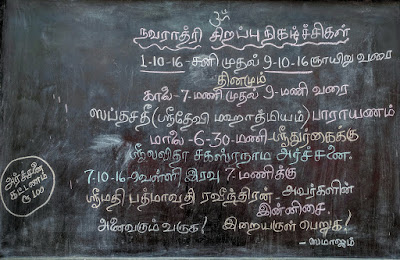 ௐ
நவராத்ரி சிறப்பு நிகழ்ச்சிகள்
1-10-16-சனி முதல் 9-10-16 ஞாயிறு வரை
தினமும்
காலை-7-மணி முதல் 9-மணி வரை
ஸப்தசதீ (ஸ்ரீதேவி மஹாத்மியம்) பாராயணம்
மாலை-6-30-மணி-ஸ்ரீதுர்கைக்கு
ஸ்ரீலலிதா சகஸ்ரநாம அர்ச்சனை.
7-10-16-வெள்ளி இரவு 7.மணிக்கு
ஸ்ரீமதி பத்மாவதி ரவீந்திரன்-அவர்களின்
இன்னிசை.
அனைவரும் வருக! இறையருள் பெறுக!
-ஸமாஜம்
அர்ச்சனை
கட்டணம்
ரூ 100